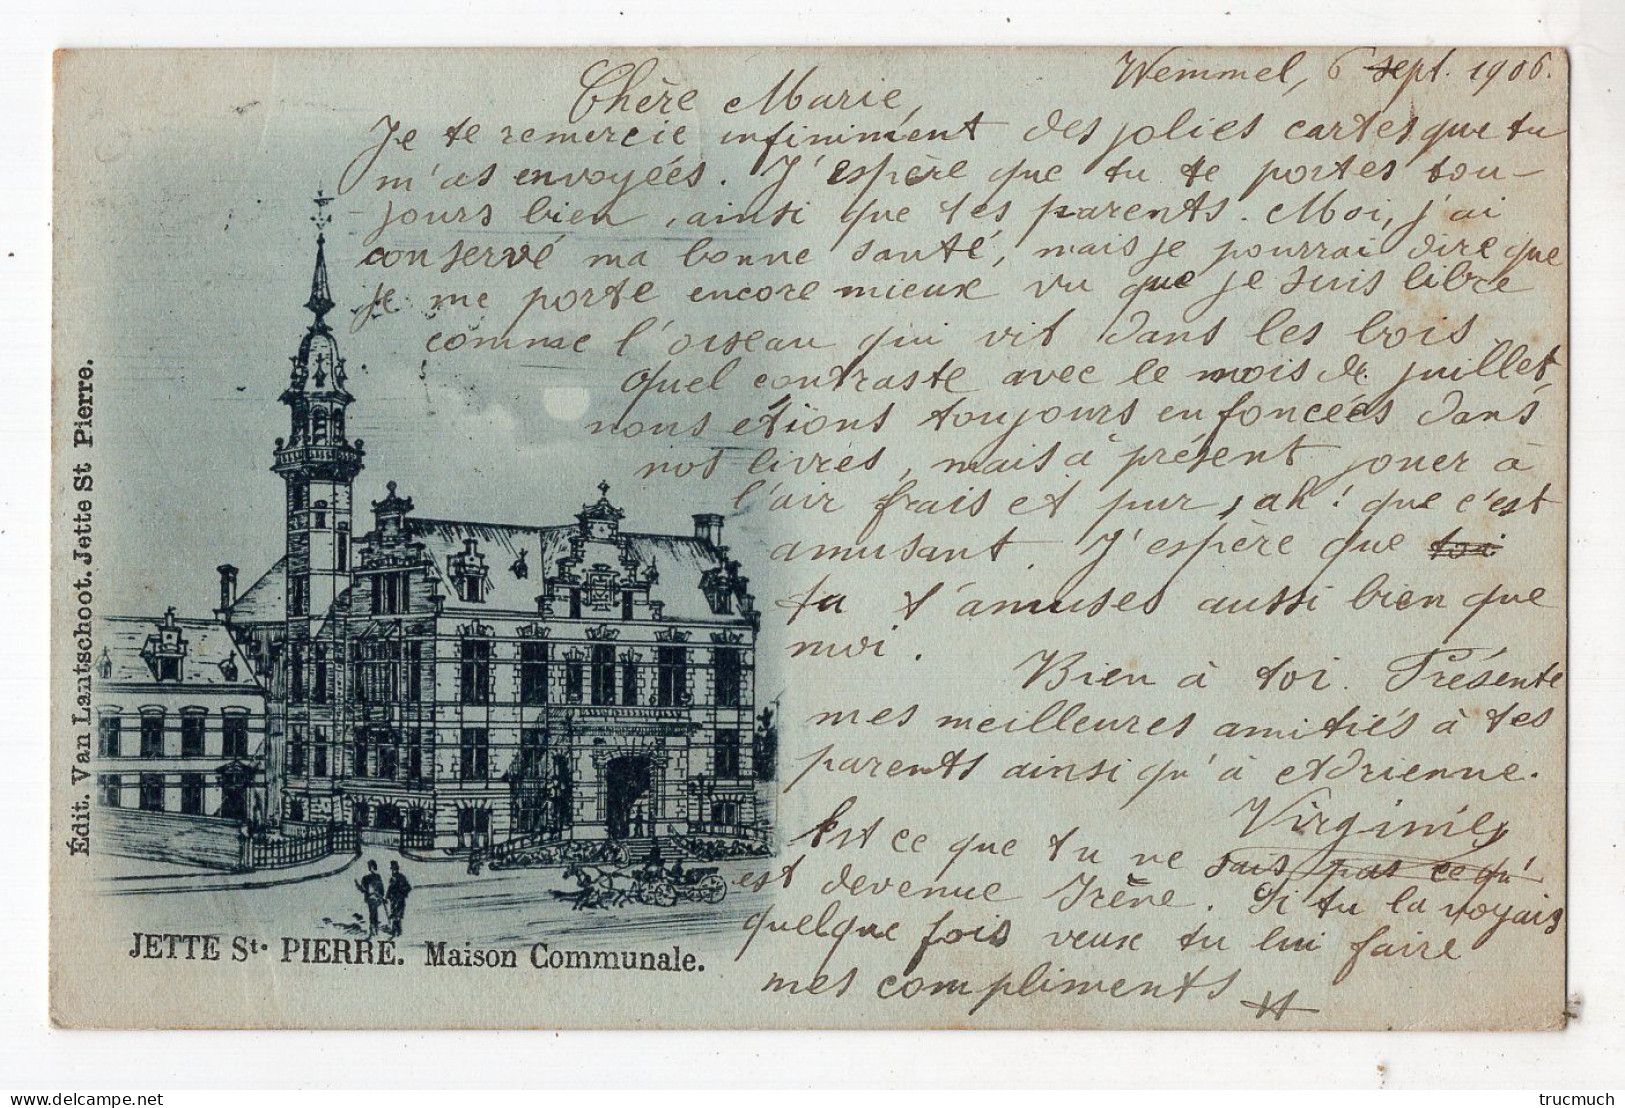 Wemmel, 6 sept. 1906.
Chère Marie,
Je te remercie infiniment des jolies cartes que tu
m'as envoyées. J'espère que tu te portes tou-
jours bien, ainsi que tes parents. Moi, j'ai
conservé ma bonne santé, mais je pourrai dire que
je me porte encore mieux vu que je suis libre
comme l'oiseau qui vit dans les bois
Quel contraste avec le mois de juillet,
nous étions toujours enfoncées dans
nos livres, mais à présent jouer à
l'air frais et pur, ah! que c'est
amusant. J'espère que toi
tu t'amuses aussi bien que
moi.
Bien à toi. Présente
mes meilleures amitiés à tes
parents ainsi qu'à Adrienne.
Virginie
Est ce que tu ne sais pas ce qu'
est devenue Irène. Si tu la voyais
quelque fois veux tu lui faire
mes compliments
Édit. Van Lantschoot. Jette St Pierre.
JETTE St. PIERRE. Maison Communale.
trucmuch
delcampe.net